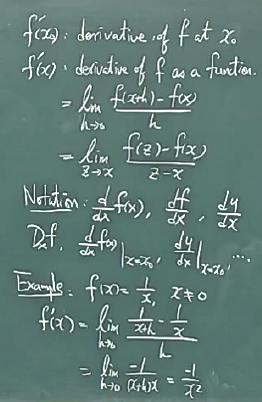 f'(x₀): derivative of f at x₀
f'(x): derivative of f as a function.
= lim_{h→0} (f(x+h) - f(x))/h
= lim_{z→x} (f(z) - f(x))/(z - x)
Notation: d/dx f(x), df/dx, dy/dx
Dₓf, d/dx f(x)|_{x=x₀}, dy/dx|_{x=x₀}, ....
Example: f(x) = 1/x, x ≠ 0
f'(x) = lim_{h→0} (1/(x+h) - 1/x)/h
= lim_{h→0} -1/((x+h)x) = -1/x²